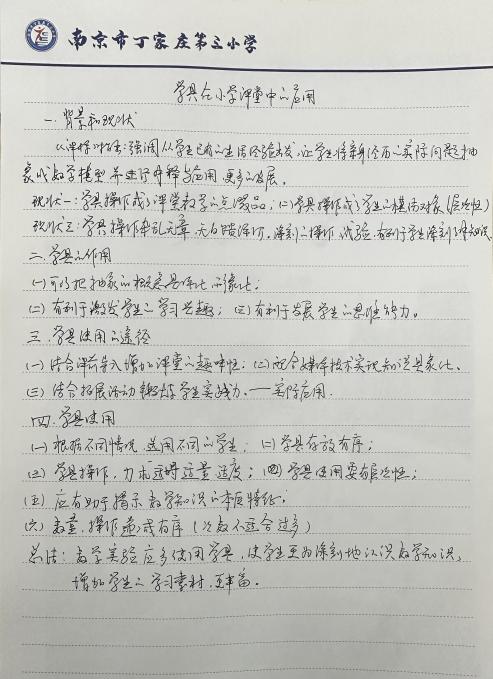 南京市丁家庄第三小学
学具在小学课堂中的应用
一.背景和现状
《课标》指出:强调从学生已有的生活经验出发,让学生将亲身经历的实际问题抽
象成数学模型并进行解释与应用,更多的发展。
现状一:学具操作成了课堂教学的点缀品;(二)学具操作成了学生的模仿对象(层次性)
现状三:学具操作杂乱无章,深刻的操作、试验,有利于学生深刻了解知识。
二.学具的作用
(一)可以把抽象的概念具体化、形象化;
(二)有利于激发学生的学习兴趣;(三)有利于发展学生的思维能力。
三.学具使用的途径
(一)结合课前导入增加课堂的趣味性;(二)配合媒体技术实现知识具象化。
(三)结合拓展活动锻炼学生实践力。——实际应用.
四.学具使用
(一)根据不同情况,选用不同的学生;(二)学具存放有序;
(三)学具操作,力求适时适量适度;(四)学具使用要有层次性;
(五)应有助于揭示数学知识的本质特征。
(六)数量、操作递减有序(次数不适合过多)
总结:数学实验应多使用学具,使学生更为深刻地认识数学知识,
增加学生的学习素材,更丰富。